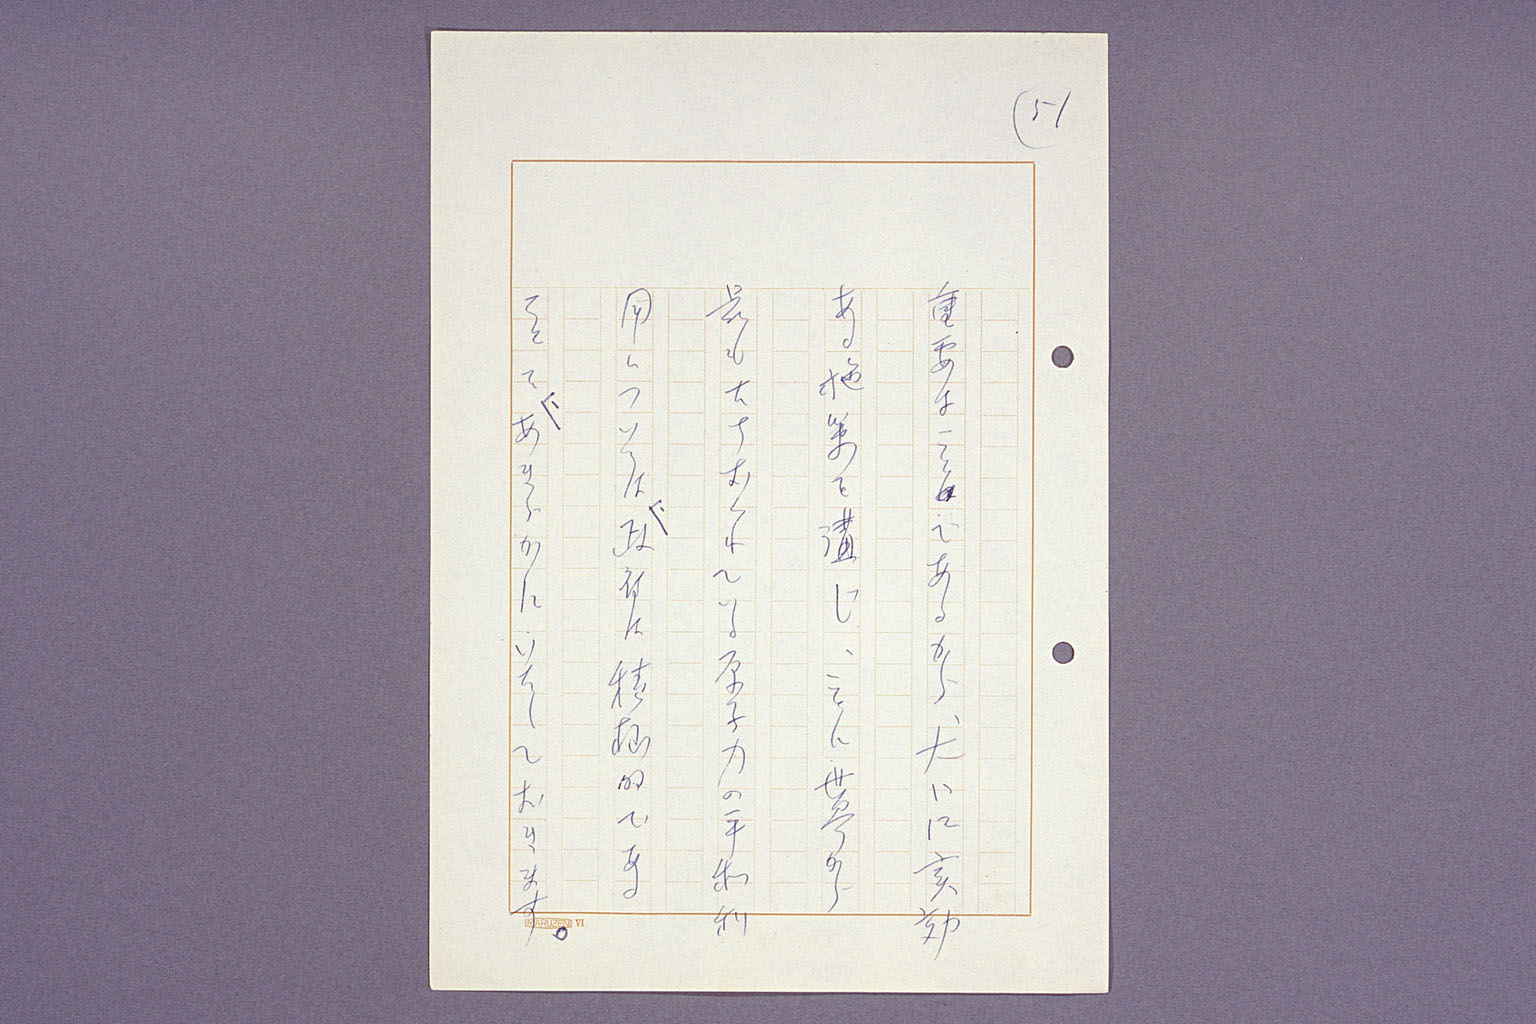 (51
重要なことであるから、大いに実効
ある施策を講じ、ことに世界から
最も立ちおくれている原子力の平和利
用については政府は積極的である
ことをあきらかにいたしておきます。
MARUZEN VI